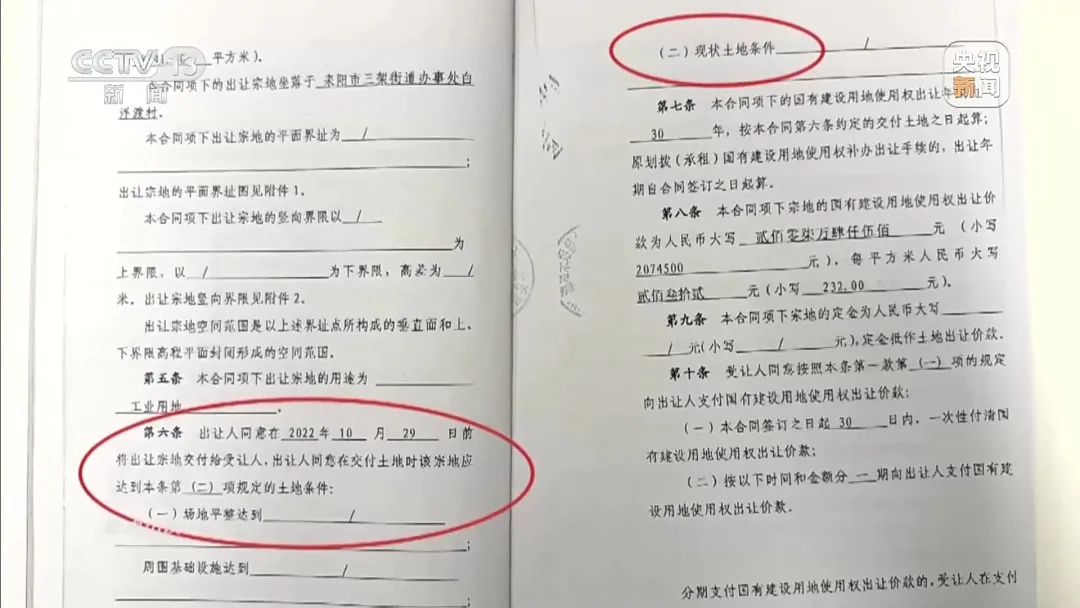 CCTV 13
新闻
央视
新闻
平方米)。
本合同项下的出让宗地坐落于 耒阳市三架街道办事处白
洋渡村.
本合同项下出让宗地的平面界址为 /
;
出让宗地的平面界址图见附件1。
本合同项下出让宗地的竖向界限以 /
为
上界限,以 / 为下界限,高差为 /
米。出让宗地竖向界限见附件2。
出让宗地空间范围是以上述界址点所构成的垂直面和上、
下界限高程平面封闭形成的空间范围。
第五条 本合同项下出让宗地的用途为
工业用地 。
第六条 出让人同意在 2022 年 10 月 29 日前
将出让宗地交付给受让人,出让人同意在交付土地时该宗地应
达到本条第 (二) 项规定的土地条件:
(一)场地平整达到 /
;
周围基础设施达到 /
;
(二)现状土地条件 /
第七条 本合同项下的国有建设用地使用权出让年
30 年,按本合同第六条约定的交付土地之日起算;
原划拨(承租)国有建设用地使用权补办出让手续的,出让年
期自合同签订之日起算。
第八条 本合同项下宗地的国有建设用地使用权出让价
款为人民币大写 贰佰零柒万肆仟伍佰 元(小写
2074500 元),每平方米人民币大写
贰佰叁拾贰 元(小写 232.00 元)。
第九条 本合同项下宗地的定金为人民币大写
/ 元(小写 / 元),定金抵作土地出让价款。
第十条 受让人同意按照本条第一款第 (一) 项的规定
向出让人支付国有建设用地使用权出让价款:
(一)本合同签订之日起 30 日内,一次性付清国
有建设用地使用权出让价款;
(二)按以下时间和金额分 一 期向出让人支付国有建
设用地使用权出让价款.
分期支付国有建设用地使用权出让价款的,受让人在支付